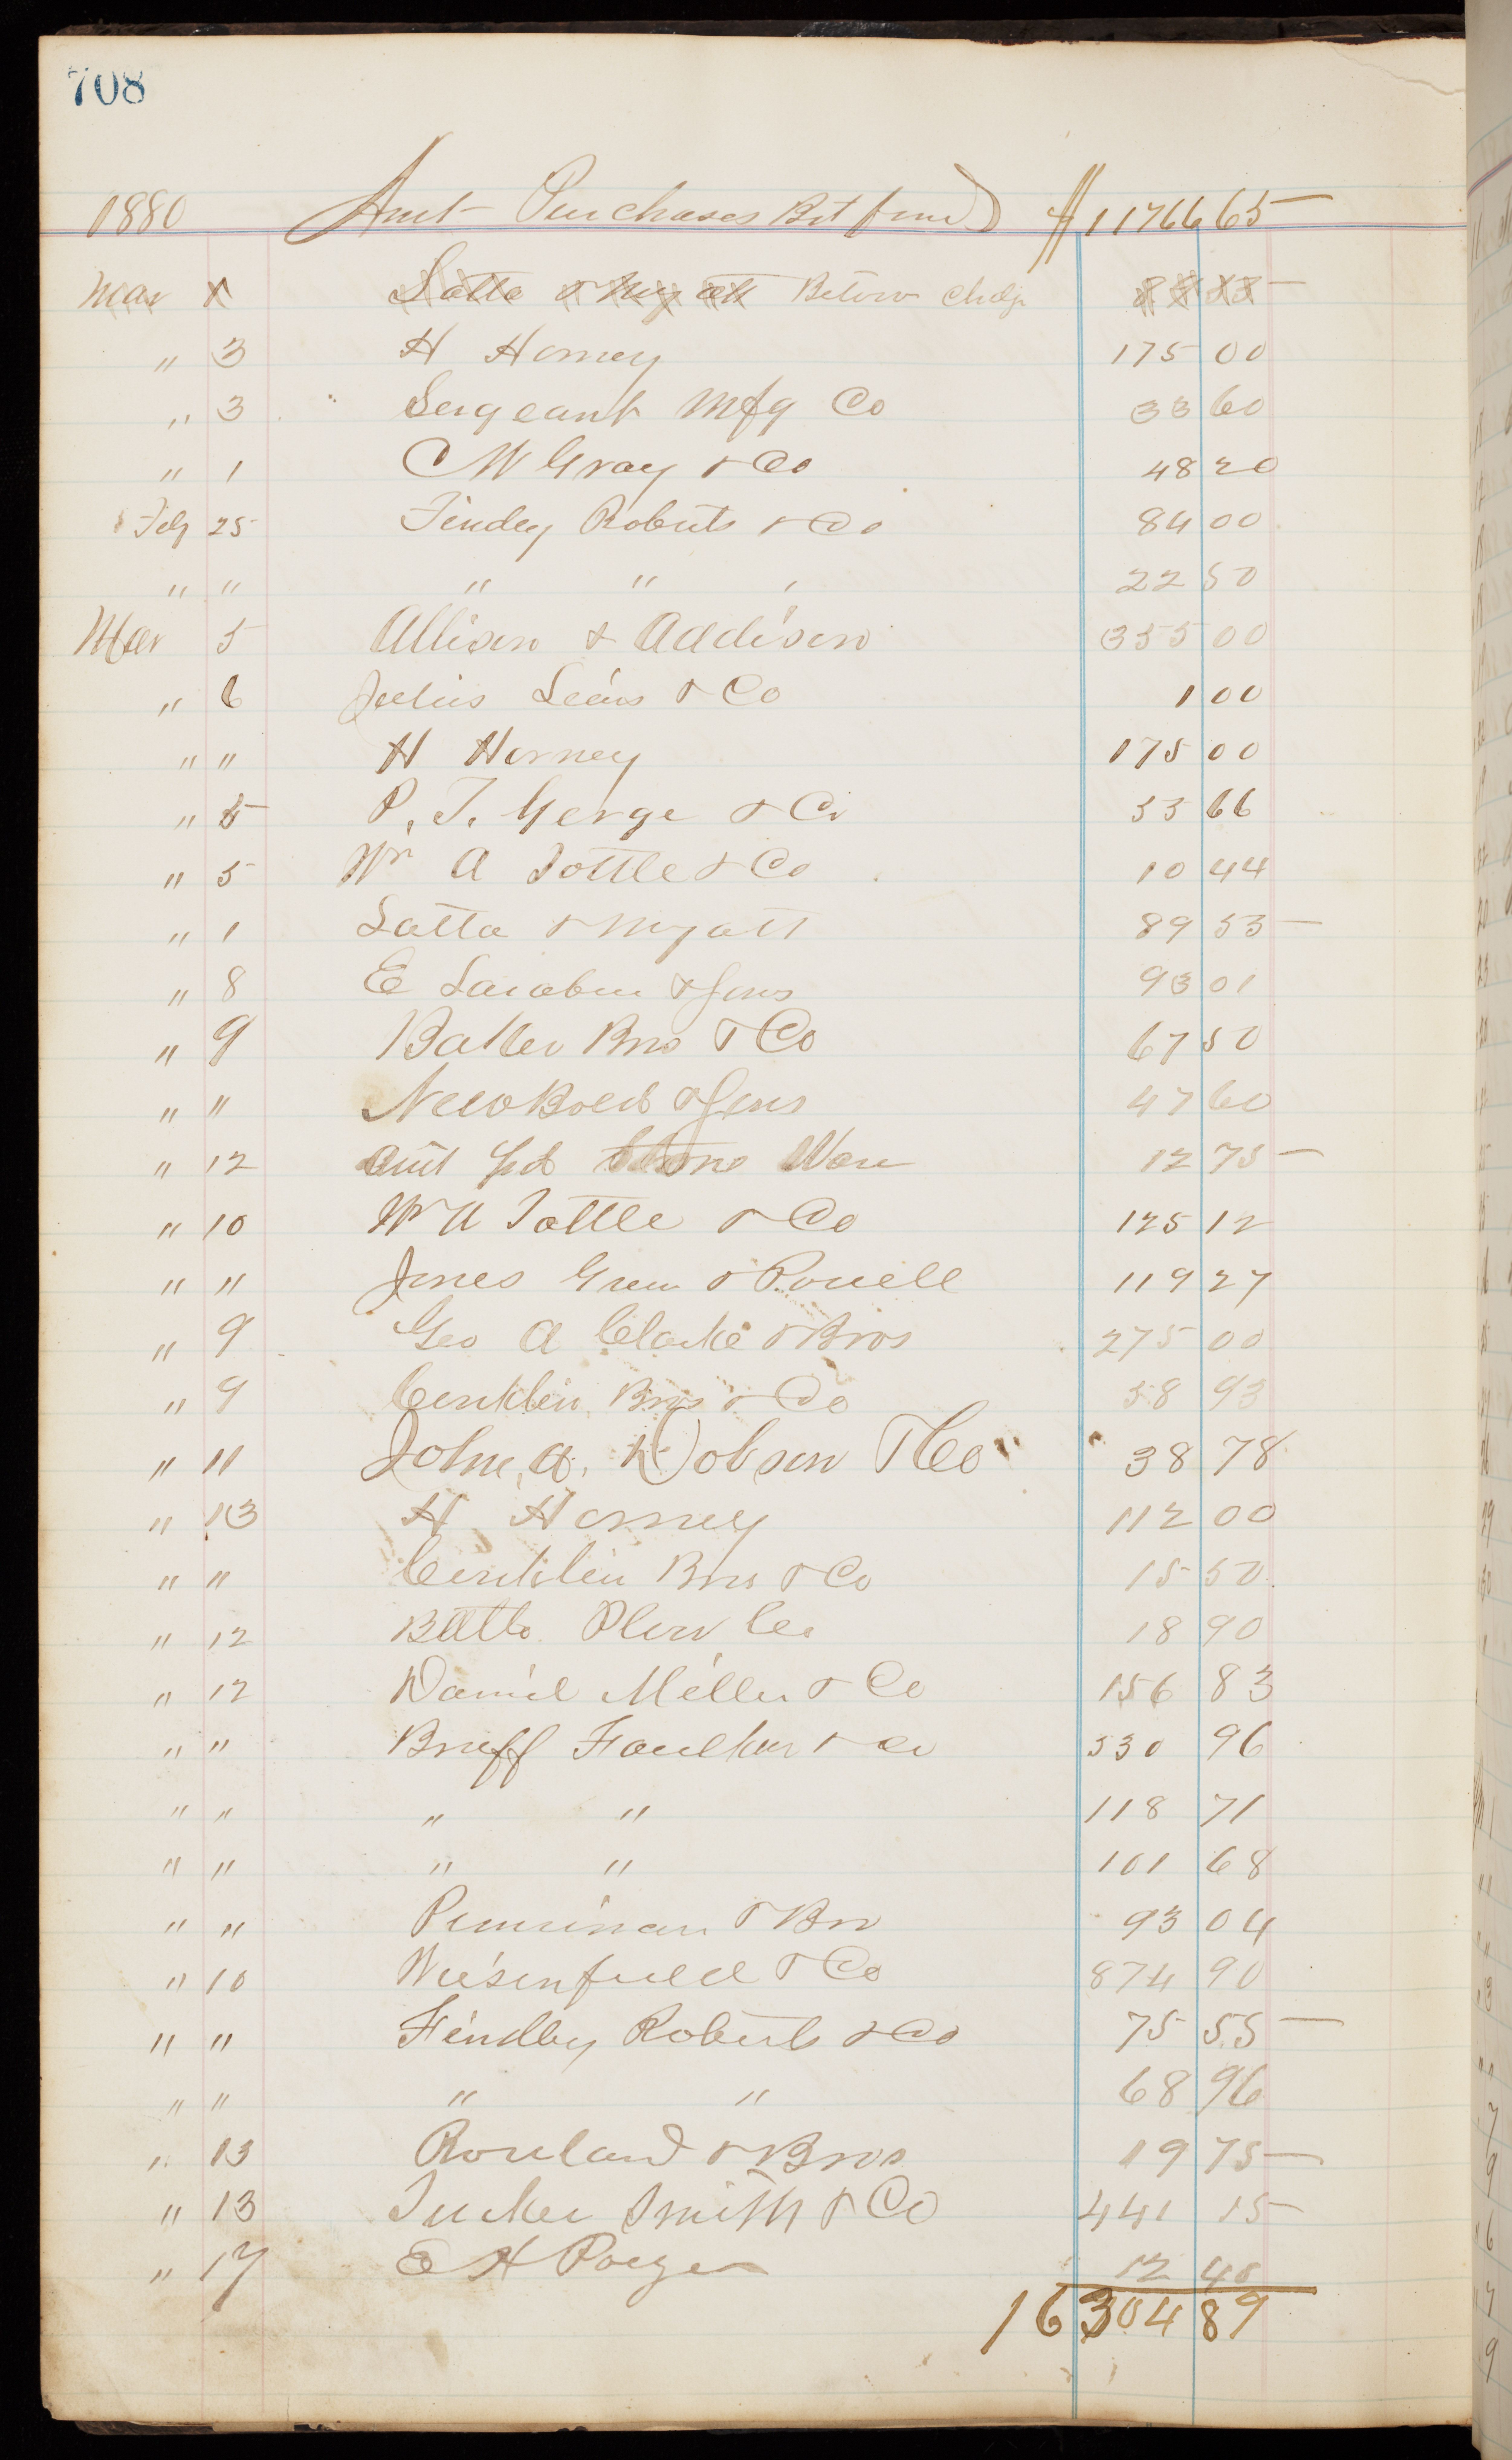 708
1880 Amt Purchases Bt forwd $11766 65
Mar 1 Latta & Myatt Below Chdg 89 53
" 3 H Horney 175 00
" 3 Sergeant Mfg Co 33 60
" 1 C W Gray & Co 48 20
Feby 25 Findey Roberts & Co 84 00
" " " " " 22 50
Mar 5 Allison & Addison 355 00
" 6 Julius Co 1 00
" " H Horney 175 00
" 5 P. T. George & Co 53 66
" 5 Wm A Tottle & Co 10 44
" 1 Latta & Myatt 89 53
" 8 E Larabee & Sons 93 01
" 9 Bros & Co 67 50
" " & Sons 47 60
" 12 Stone Ware 12 75
" 10 Wm A Tottle & Co 125 12
" " Jones Green & Powell 119 27
" 9 Geo A Clarke & Bros 275 00
" 9 Conklin Bros & Co 58 93
" 11 John. A. Dobson & Co 38 78
" 13 H Horney 112 00
" " Conklin Bros & Co 15 50
" 12 Plow Co 18 90
" 12 Daniel Miller & Co 156 83
" " Bruff Faulkner & Co 330 96
" " " " 118 71
" " " " 101 68
" " Penniman & Bro 93 04
" 10 Wiesenfeeld & Co 874 90
" " Findley Roberts & Co 75 55
" " " " 68 96
" 13 Rouland & Bros 19 75
" 13 Tucker Smith & Co 441 15
" 17 E H 12 40
16304 89